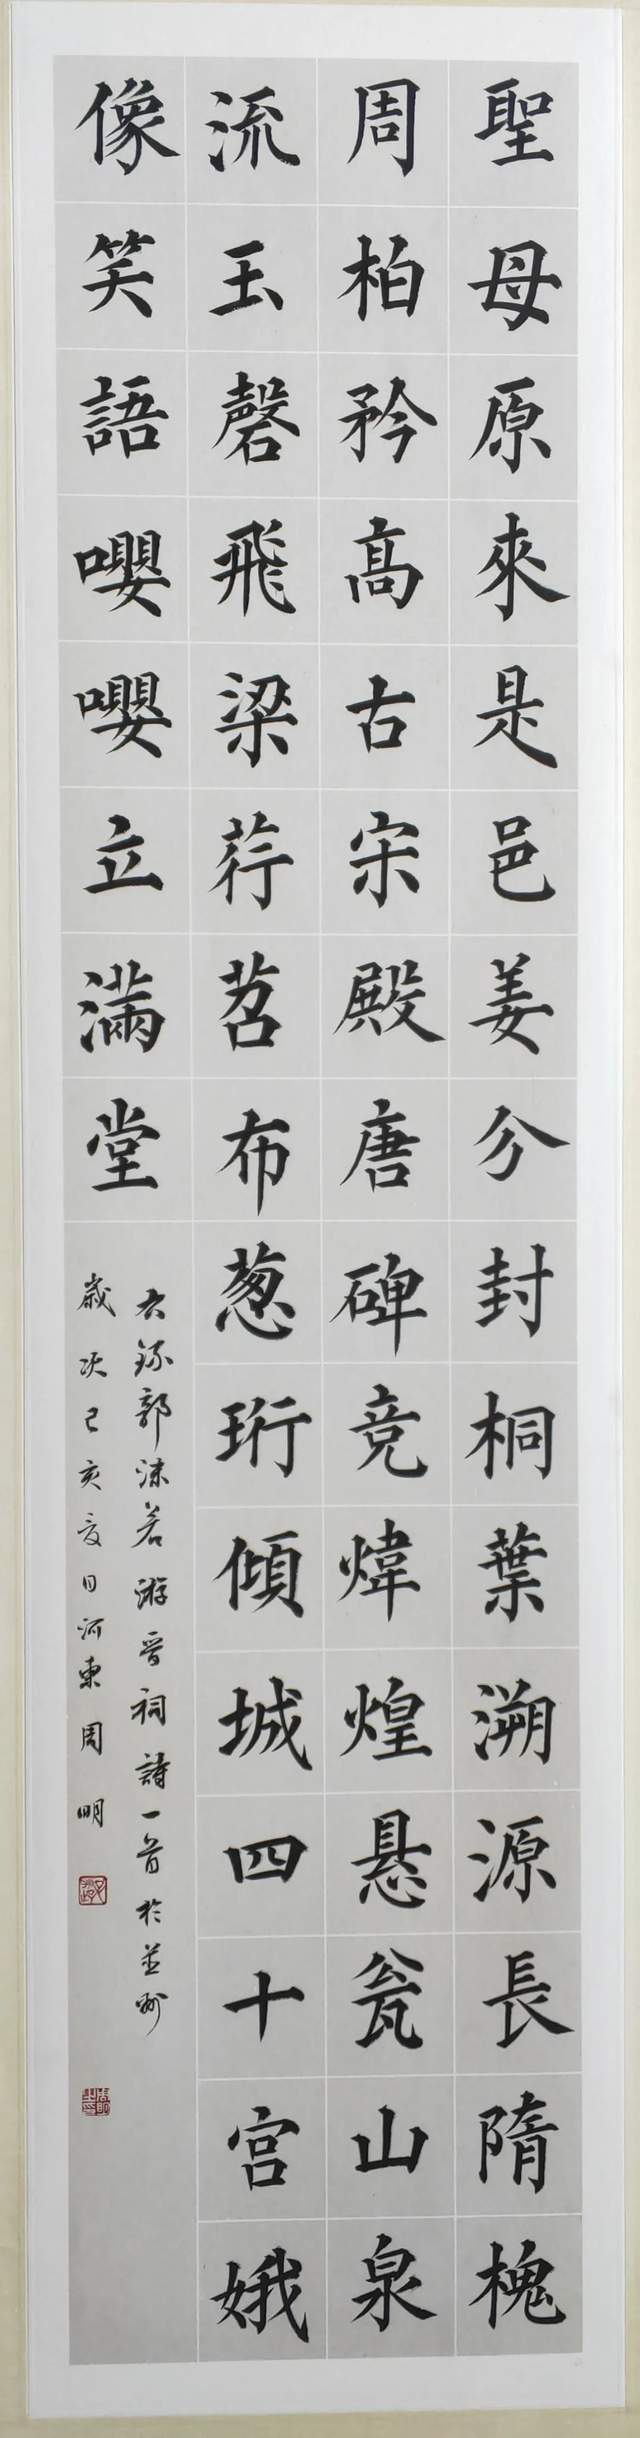 聖母原來是邑姜分封桐葉溯源長隋槐
周柏矜高古宋殿唐碑竞煒煌懸瓮山泉
流玉磬飛梁荇苕布葱珩傾城四十宫娥
像笑語嚶嚶立滿堂
右錄郭沫若游晋祠詩一首於並州
歲次己亥夏日河東周明